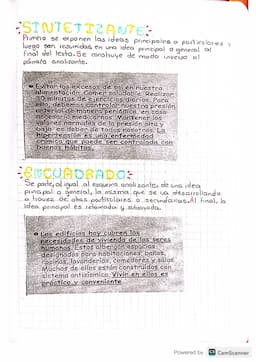 SINTETIZANTE
Primero se exponen las ideas principales o particulares y
luego son resumidas en una idea principal o general al
final del texto. Se construye de modo inverso al
párrafo analizante.
• Evitar los excesos de sal en nuestra
alimentación. Comer saludable. Realizar
30 minutos de ejercicios diarios. Para
ello, debemos controlar nuestra presión
arterial de manera periódica, en caso
necesario medicarnos. Mantener los
valores normales de la presión alta y
baja es deber de todos nosotros. La
hipertensión es una enfermedad
crónica que puede ser controlada con
buenos hábitos.
ENCUADRADO
Se parte, al igual al esquema analizante, de una idea
principal o general, la misma que se va desarrollando
a través de otras particulares o secundarias. Al final, la
idea principal es retomada y
• Los edificios hoy cubren las
necesidades de vivienda de los seres
humanos. Estos albergan espacios
designados para habitaciones, baños,
cocinas, lavanderías, comedores y salas.
Muchos de ellos están construidos con
sistema antisísmico. Vivir en ellos es
práctico y conveniente.
Powered by CS CamScanner